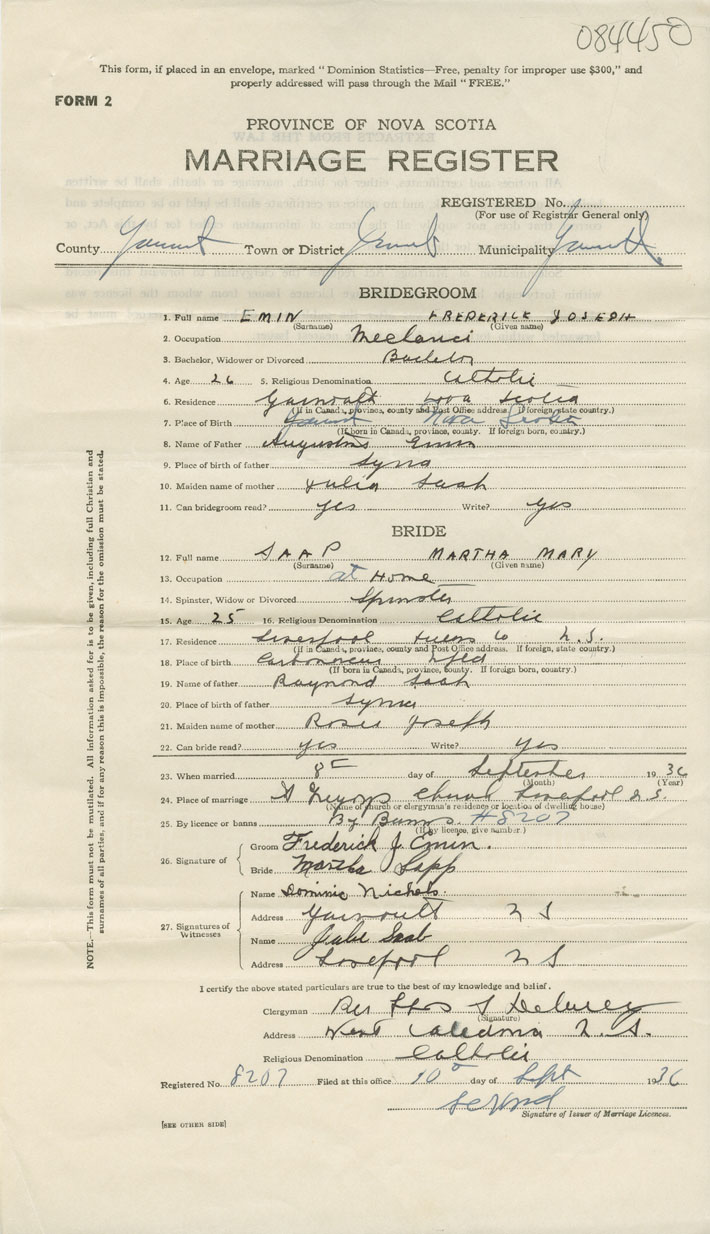 084450
This form, if placed in an envelope, marked "Dominion Statistics—Free, penalty for improper use $300," and
properly addressed will pass through the Mail "FREE."
FORM 2
PROVINCE OF NOVA SCOTIA
MARRIAGE REGISTER
REGISTERED No.
(For use of Registrar General only)
County Town or District Municipality
BRIDEGROOM
1. Full name EMIN FREDERICK JOSEPH
(Surname) (Given name)
2. Occupation
3. Bachelor, Widower or Divorced Bachelor
4. Age 26 5. Religious Denomination Catholic
6. Residence Nova Scotia
(If in Canada, province, county and Post Office address. If foreign, state country.)
7. Place of Birth Nova Scotia
(If born in Canada, province, county. If foreign born, country.)
8. Name of Father Augustus Emin
9. Place of birth of father Syria
10. Maiden name of mother Julia
11. Can bridegroom read? yes Write? yes
BRIDE
12. Full name SAAP MARTHA MARY
(Surname) (Given name)
13. Occupation at Home
14. Spinster, Widow or Divorced Spinster
15. Age 25 16. Religious Denomination Catholic
17. Residence Liverpool Queens Co N.S.
(If in Canada, province, county and Post Office address. If foreign, state country.)
18. Place of birth Nfld
(If born in Canada, province, county. If foreign born, country.)
19. Name of father Raymond
20. Place of birth of father Syria
21. Maiden name of mother Rosie Joseph
22. Can bride read? yes Write? yes
23. When married 8 day of September 1936
(Month) (Year)
24. Place of marriage Church Liverpool N.S.
(Name of church or clergyman's residence or location of dwelling house)
25. By licence or banns By Banns. #8207
(If by licence, give number.)
26. Signature of
Groom Frederick J. Emin.
Bride Martha Sapp
27. Signatures of Witnesses
Name Dominic Nichols.
Address Yarmouth N S
Name Saab
Address Liverpool N S
I certify the above stated particulars are true to the best of my knowledge and belief.
Clergyman
(Signature)
Address West Caledonia N.S.
Religious Denomination Catholic
Registered No. 8207 Filed at this office 10 day of Sept 1936
Signature of Issuer of Marriage Licences.
[SEE OTHER SIDE]
NOTE.—This form must not be mutilated. All information asked for is to be given, including full Christian and
surnames of all parties, and if for any reason this is impossible, the reason for the omission must be stated.